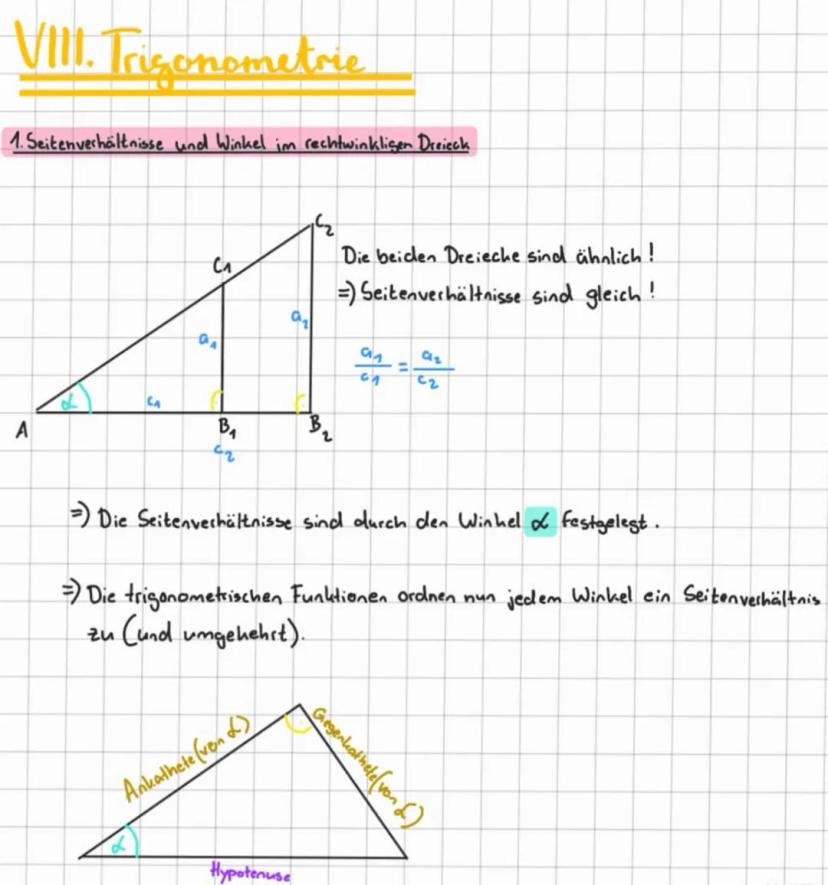 VIII. Trigonometrie
1. Seitenverhältnisse und Winkel im rechtwinkligen Dreieck
C₂
C₁
Die beiden Dreiecke sind ähnlich!
=) Seitenverhältnisse sind gleich!
a₁
a₂
a₁/c₁ = a₂/c₂
α
c₁
A
B₁
B₂
c₂
=) Die Seitenverhältnisse sind durch den Winkel α festgelegt.
=) Die trigonometrischen Funktionen ordnen nun jedem Winkel ein Seitenverhältnis
zu (und umgekehrt).
Ankathete (von α)
Gegenkathete (von α)
α
Hypotenuse